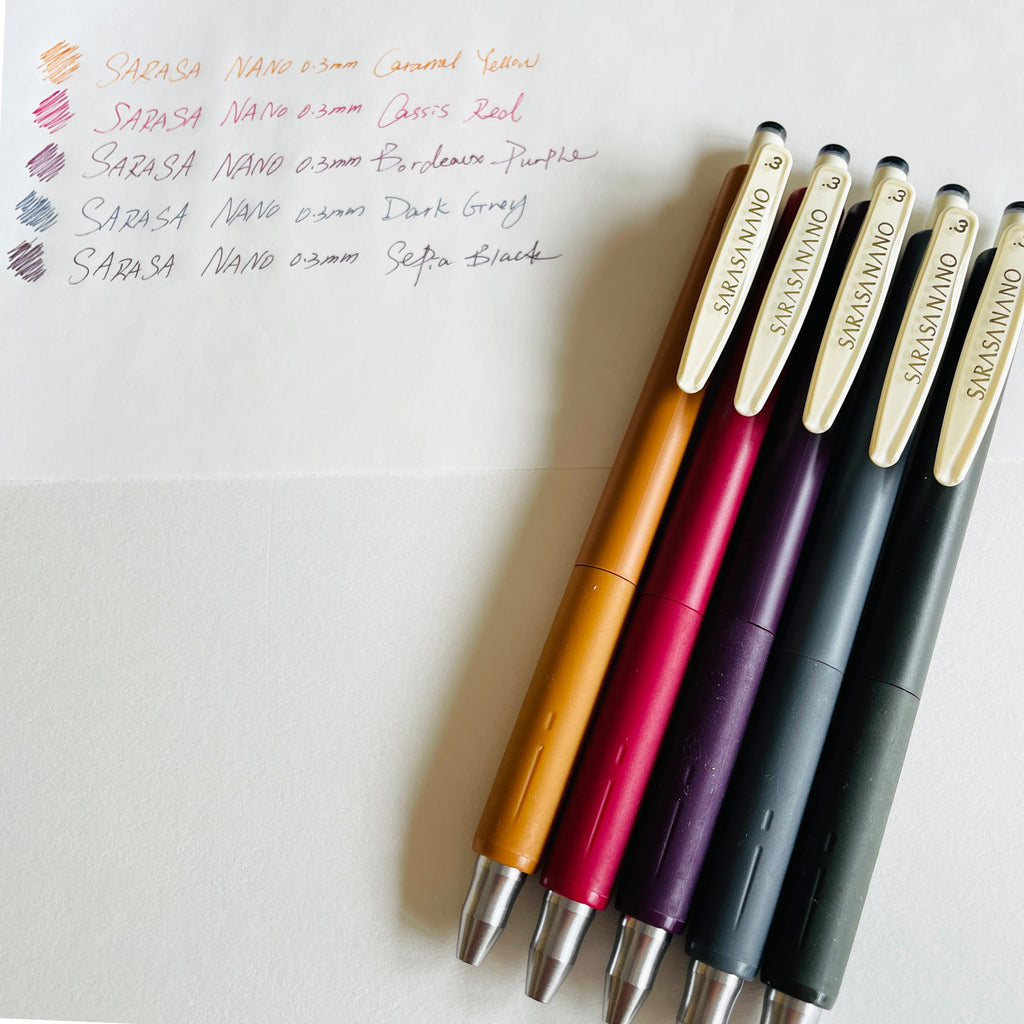 SARASA NANO 0.3mm Caramel Yellow
SARASA NANO 0.3mm Cassis Red
SARASA NANO 0.3mm Bordeaux Purple
SARASA NANO 0.3mm Dark Grey
SARASA NANO 0.3mm Sepia Black
SARASA NANO .3
SARASA NANO .3
SARASA NANO .3
SARASA NANO .3
SARASA NANO